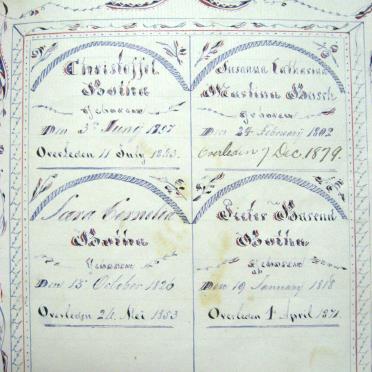 Christoffel
Botha
Geboren
Den 3e Juny 1797
Overleden 11 July 1883.
Susanna Catharina
Martina Busch
Geboren
Den 24 Februarij 1802
Overleden 7 Dec. 1879.
Sara Cornelia
Botha
Geboren
Den 15 October 1826
Overleden 24 Mei 1853
Pieter Barend
Botha
Geboren
Den 19 January 1818
Overleden 1 April 1871.